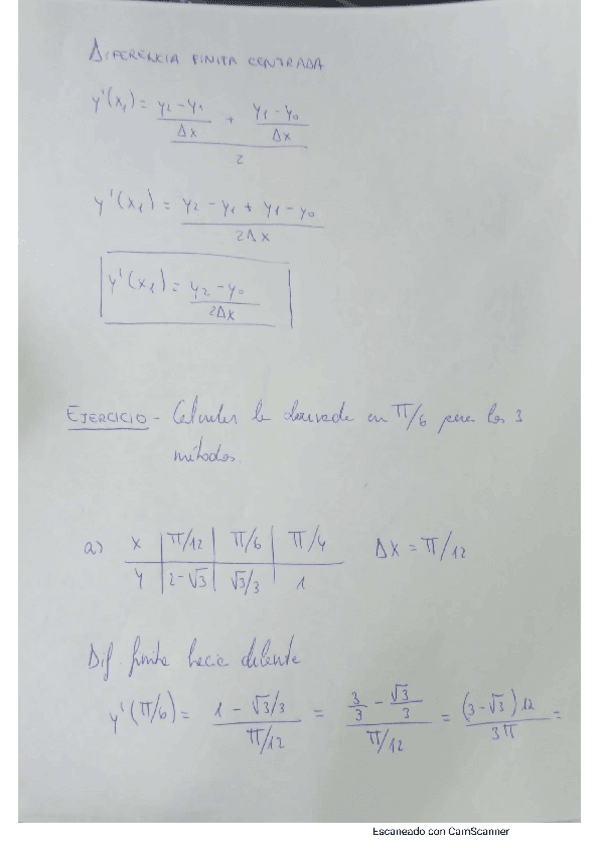 DIFERENCIA FINITA CENTRADA
y'(x₁) = ((y₂-y₁)/Δx + (y₁-y₀)/Δx)/2
y'(x₁) = (y₂ - y₁ + y₁ - y₀)/2Δx
y'(x₁) = (y₂ - y₀)/2Δx
EJERCICIO - Calcular la derivada en π/6 para los 3
métodos.
a) x | π/12 | π/6 | π/4 Δx = π/12
y | 2-√3 | √3/3 | 1
Dif. finita hacia delante
y'(π/6) = (1 - √3/3)/(π/12) = (3/3 - √3/3)/(π/12) = (3-√3)12/3π =
Escaneado con CamScanner